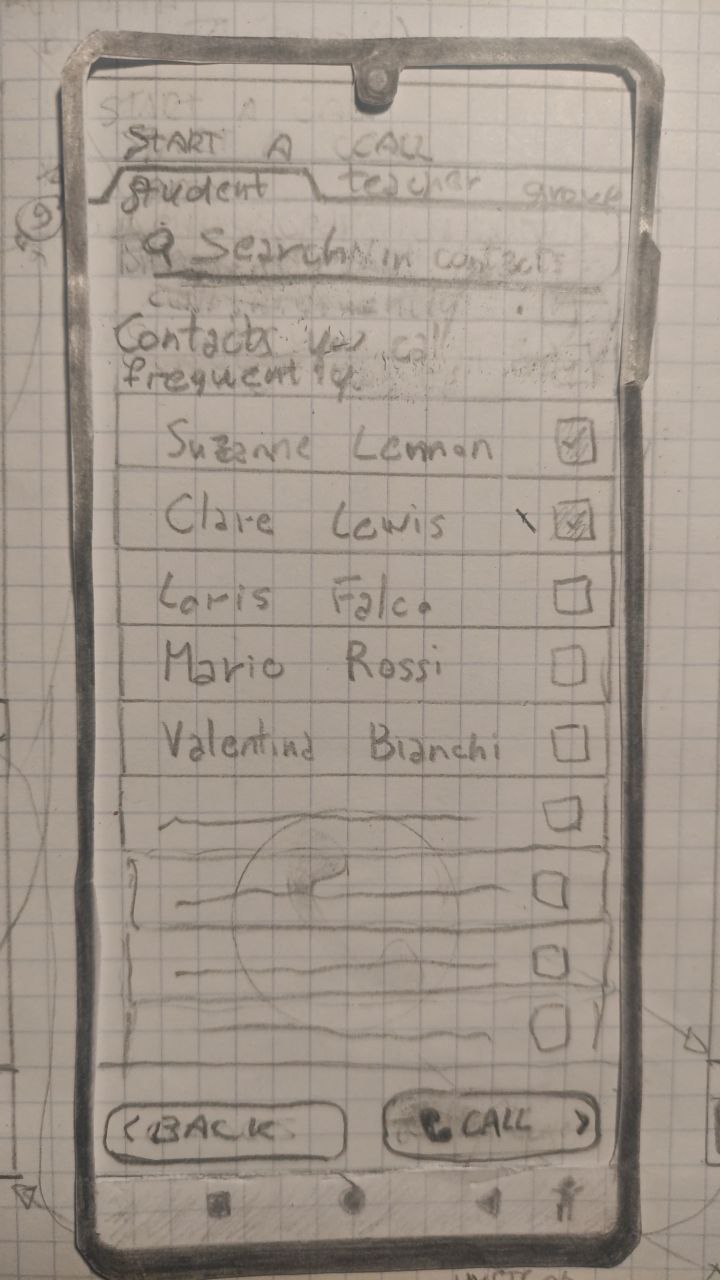 START A CALL
Student teacher group
Search in contacts
Contacts you call
frequently
Suzanne Lennon
Clare Lewis
Loris Falco
Mario Rossi
Valentina Bianchi
< BACK CALL >